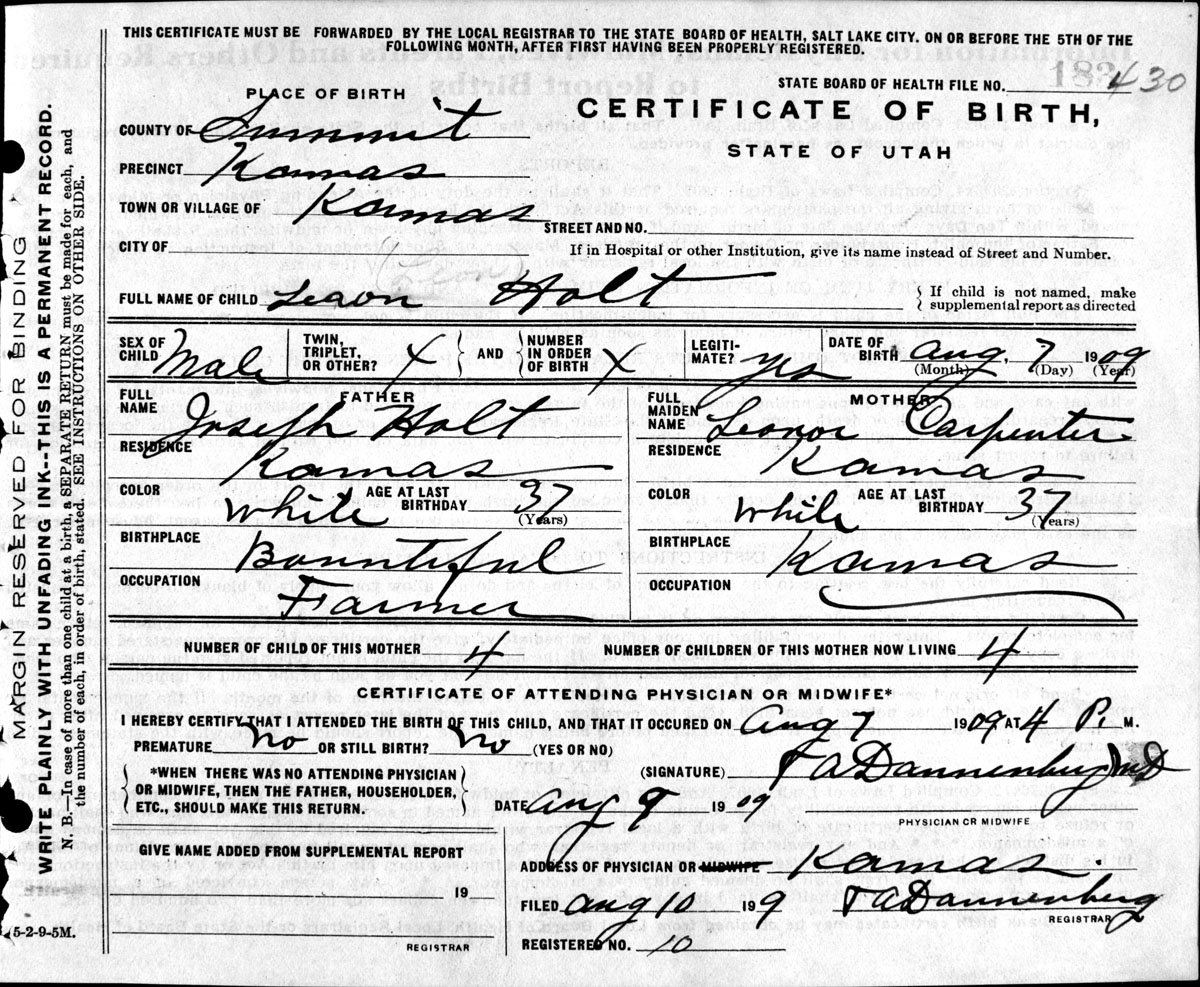 THIS CERTIFICATE MUST BE FORWARDED BY THE LOCAL REGISTRAR TO THE STATE BOARD OF HEALTH, SALT LAKE CITY. ON OR BEFORE THE 5TH OF THE
FOLLOWING MONTH, AFTER FIRST HAVING BEEN PROPERLY REGISTERED.
STATE BOARD OF HEALTH FILE NO. 183 430
PLACE OF BIRTH
CERTIFICATE OF BIRTH,
STATE OF UTAH
COUNTY OF Summit
PRECINCT Kamas
TOWN OR VILLAGE OF Kamas
STREET AND NO.
CITY OF
If in Hospital or other Institution, give its name instead of Street and Number.
(Leon)
FULL NAME OF CHILD Leaon Holt
{ If child is not named, make
supplemental report as directed
SEX OF CHILD Male
TWIN, TRIPLET, OR OTHER? X
AND
NUMBER IN ORDER OF BIRTH X
LEGITI- MATE? yes
DATE OF BIRTH Aug. 7 1909
(Month) (Day) (Year)
FATHER
FULL NAME Joseph Holt
RESIDENCE Kamas
COLOR White
AGE AT LAST BIRTHDAY 37 (Years)
BIRTHPLACE Bountiful
OCCUPATION Farmer
MOTHER
FULL MAIDEN NAME Leonor Carpenter
RESIDENCE Kamas
COLOR While
AGE AT LAST BIRTHDAY 37 (Years)
BIRTHPLACE Kamas
OCCUPATION
NUMBER OF CHILD OF THIS MOTHER 4
NUMBER OF CHILDREN OF THIS MOTHER NOW LIVING 4
CERTIFICATE OF ATTENDING PHYSICIAN OR MIDWIFE*
I HEREBY CERTIFY THAT I ATTENDED THE BIRTH OF THIS CHILD, AND THAT IT OCCURED ON Aug 7 1909 AT 4 P. M.
PREMATURE No OR STILL BIRTH? No (YES OR NO)
{ *WHEN THERE WAS NO ATTENDING PHYSICIAN
OR MIDWIFE, THEN THE FATHER, HOUSEHOLDER,
ETC., SHOULD MAKE THIS RETURN. }
(SIGNATURE) T A Dannenberg MD
PHYSICIAN OR MIDWIFE
DATE Aug 9 1909
GIVE NAME ADDED FROM SUPPLEMENTAL REPORT
19
REGISTRAR
ADDRESS OF PHYSICIAN OR MIDWIFE Kamas
FILED Aug 10 199 T A Dannenberg
REGISTRAR
REGISTERED NO. 10
5-2-9-5M.
MARGIN RESERVED FOR BINDING
WRITE PLAINLY WITH UNFADING INK--THIS IS A PERMANENT RECORD.
N. B.—In case of more than one child at a birth, a SEPARATE RETURN must be made for each, and
the number of each, in order of birth, stated. SEE INSTRUCTIONS ON OTHER SIDE.